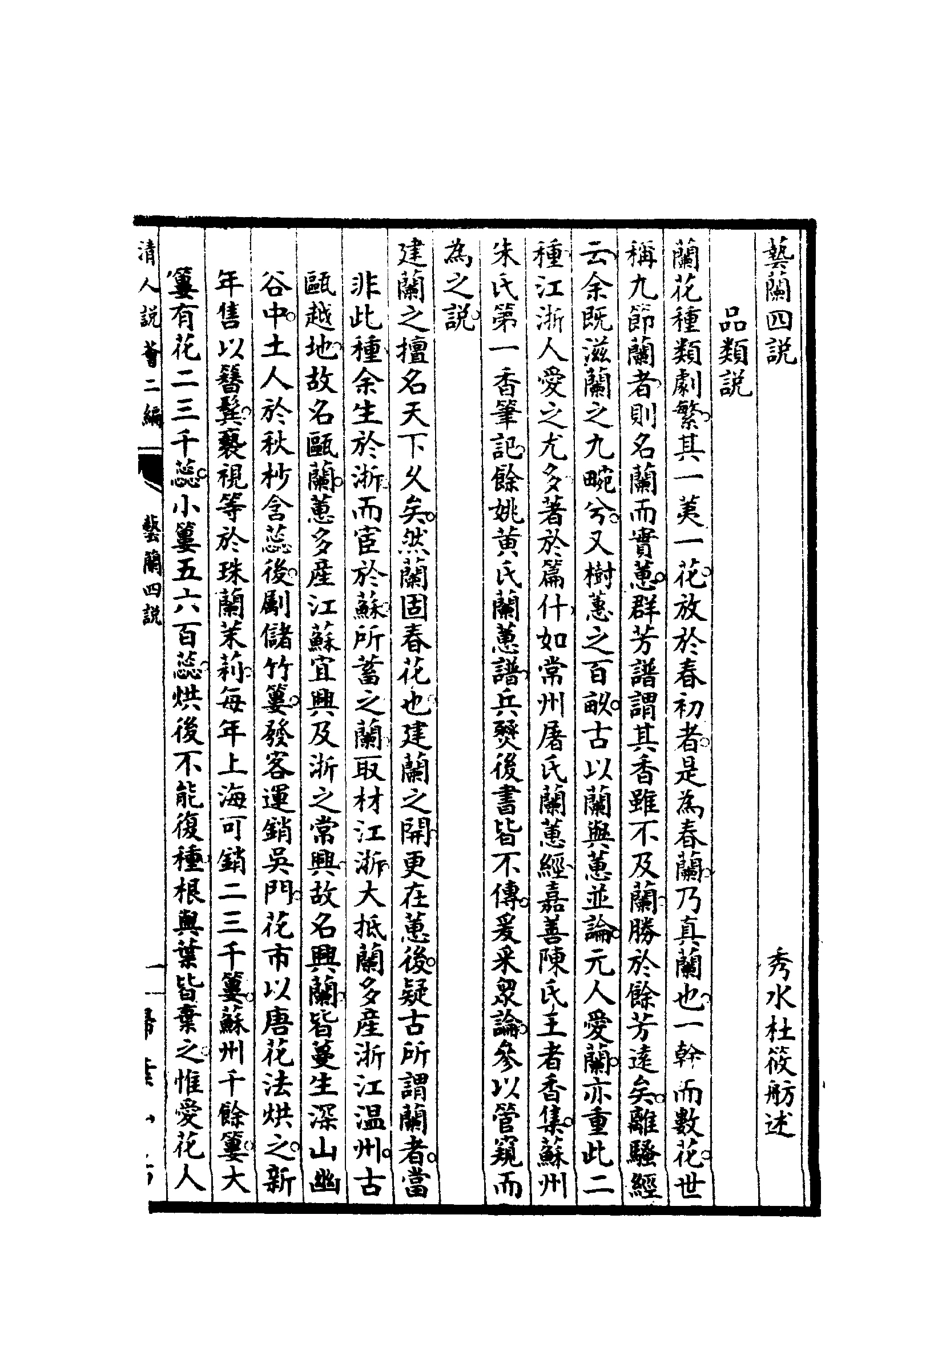 藝蘭四説
秀水杜筱舫述
品類説
蘭花種類劇繁其一荑一花放於春初者是為春蘭乃真蘭也一幹而數花世
稱九節蘭者則名蘭而實蕙群芳譜謂其香雖不及蘭勝於餘芳遠矣離騷經
云余既滋蘭之九畹兮又樹蕙之百畝古以蘭與蕙並論元人愛蘭亦重此二
種江浙人愛之尤多著於篇什如常州屠氏蘭蕙經嘉善陳氏王者香集蘇州
朱氏第一香筆記餘姚黃氏蘭蕙譜兵燹後書皆不傳爰采眾論參以管窺而
為之説
建蘭之擅名天下久矣然蘭固春花也建蘭之開更在蕙後疑古所謂蘭者當
非此種余生於浙而宦於蘇所蓄之蘭取材江浙大抵蘭多產浙江温州古
甌越地故名甌蘭蕙多產江蘇宜興及浙之常興故名興蘭皆蔓生深山幽
谷中土人於秋杪含蕊後劚儲竹簍發客運銷吳門花市以唐花法烘之新
年售以簪鬓褻視等於珠蘭茉莉每年上海可銷二三千簍蘇州千餘簍大
簍有花二三千蕊小簍五六百蕊烘後不能復種根與葉皆棄之惟愛花人
清人説薈二編
藝蘭四説
一